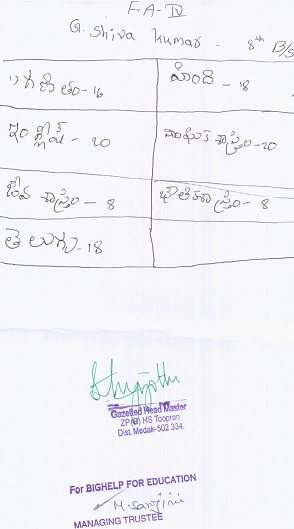 F-A-IV
G. Shiva Kumar - 8th B/S
గణితం-16
హింది - 18
ఇంగ్లీష్ - 20
సాంఘిక శాస్త్రం-20
జీవ శాస్త్రం - 8
భౌతికశాస్త్రం - 8
తెలుగు-18
Gazetted Head Master
ZP(B) HS Toopran
Dist. Medak-502 334.
For BIGHELP FOR EDUCATION
M. Sanjini
MANAGING TRUSTEE